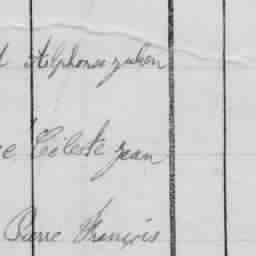 Alphonse Julien
Céleste Jean
Pierre François